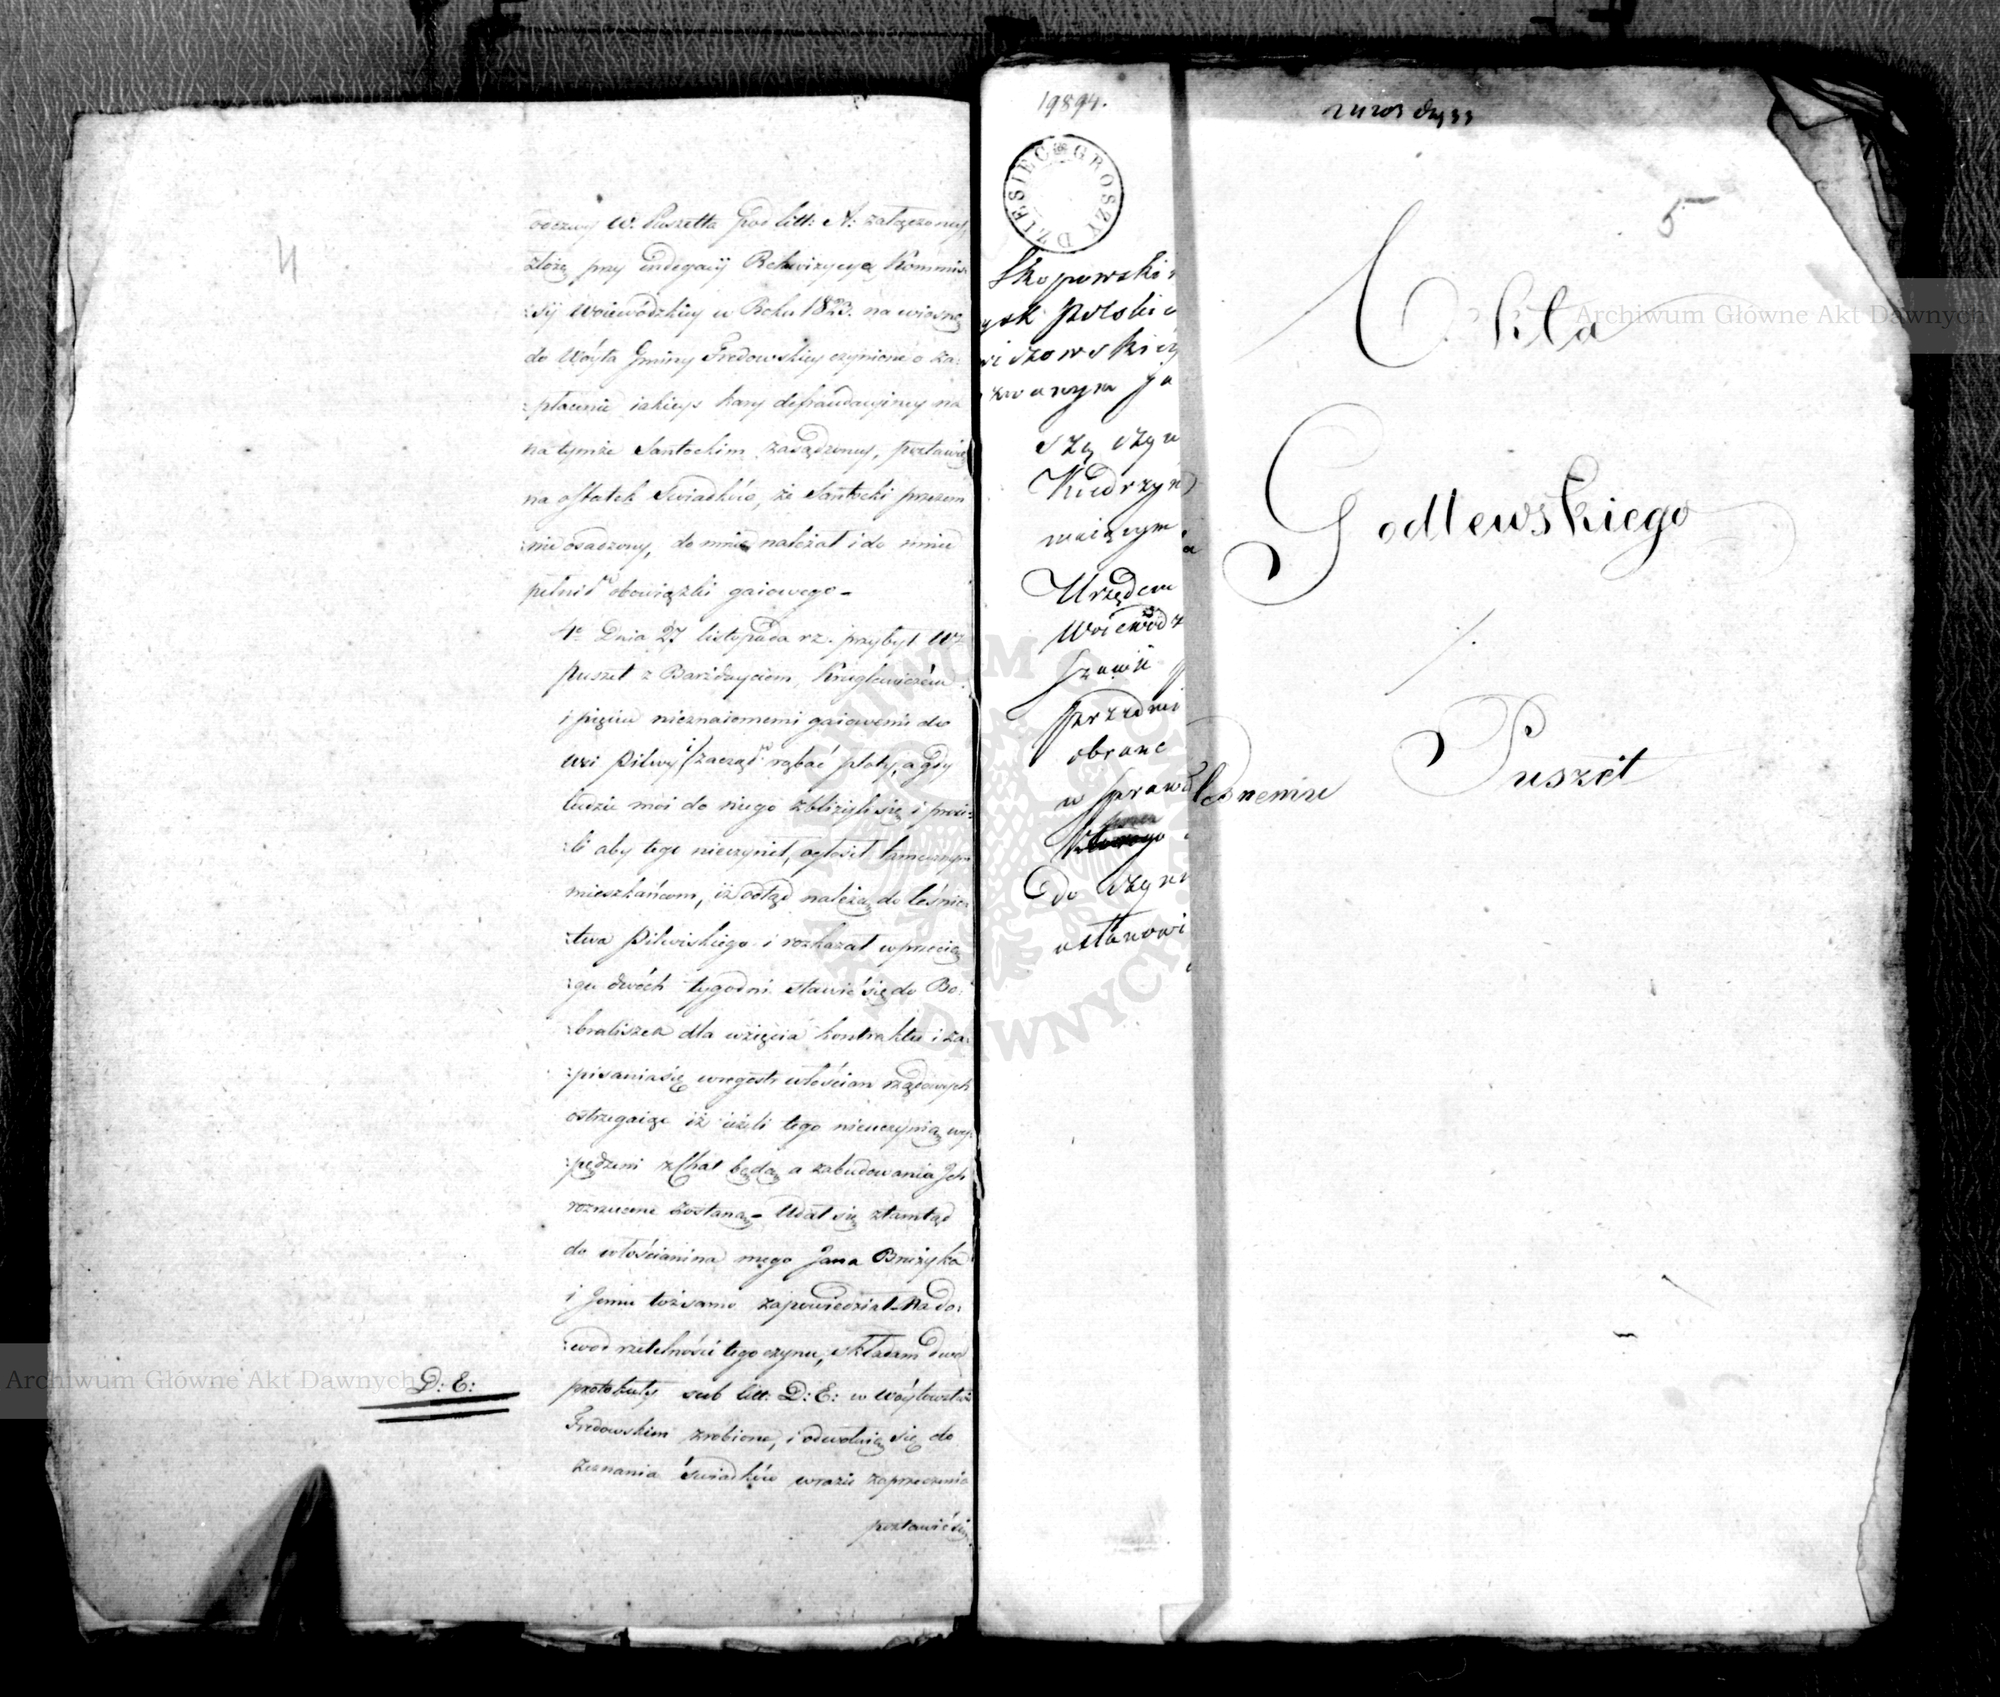 4
odezwy W. Puszetta pod litt: A: załączoney,
złożę przy indagacji Rekwizycyą Kommis:
:syi Woiewódzkiey w Roku 1823. na wiosnę
do Wóyta Gminy Fredowskiey czynione o za:
:płacenie iakieys kary defraudacyiney na
na tymże Santockim zasądzoney, postawię
na ostatek Swiadków, że Santocki przezem
:nie osadzony, do mnie należał i do mnie
pełnił obowiązki gaiowego -
4o Dnia 27 listopada rz. przybył WJ
Puszet z Barzdayciem, Kruglewiczem
i pięciu nieznaiomemi gaiowemi do
wsi Pilwy i zaczął rąbać płoty, a gdy
ludzie moi do niego zbliżyli się i prosi:
:li aby tego nieczynił, ogłosił tamecznym
mieszkańcom, iż odtąd należą do leśnic:
:twa Pilwiskiego i rozkazał w przecią:
:gu dwóch tygodni stawić się do Bo:
:braliszek dla wzięcia kontraktu i za:
:pisania się w regestr włościan rządowych
ostrzegaiąc iż ieżeli tego nieuczynią wy:
:pędzeni z Chat będą a zabudowania Ich
rozrzucone zostaną - Udał się ztamtąd
do włościanina mego Jana Bniżyka
i Jemu tożsamo zapowiedział. Na do:
:wod rzetelności tego czynu, składam dwa
D: E:
protokuły sub litt: D: E: w Wóytowstwie
Fredowskim zrobione, i odwołuię się do
zeznania świadków w razie zaprzeczenia
postawić się
19894.
DZIESIĘC GROSZY
Skopowski
Polski
szą czyn
Kiedrzyń
maiącym
Urzędem
Woiewódz
przedmi
obrane
w sprawi
przez
do czyn
ustanowi
5
Akta
Godlewskiego
%
Puszét